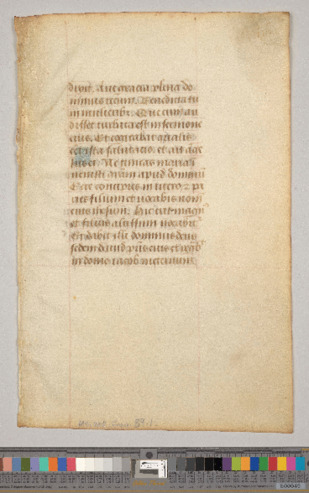 dixit. Aue gracia plena do
minus tecum. Benedicta tu
in mulieribus. Que cum au
disset turbata est in sermone
eius. Et cogitabat qualis
esset ista salutatio. et ait
Ne timeas maria
uenisti graciam apud dominum
Ecce concipies in utero 2 pa
ries filium et uocabis nomen
eius ihesum. hic erit magnus
et filius altissimi uocabit
Et dabit illi dominus deus
sedem dauid patris eius et regnabit
in domo iacob in eternum